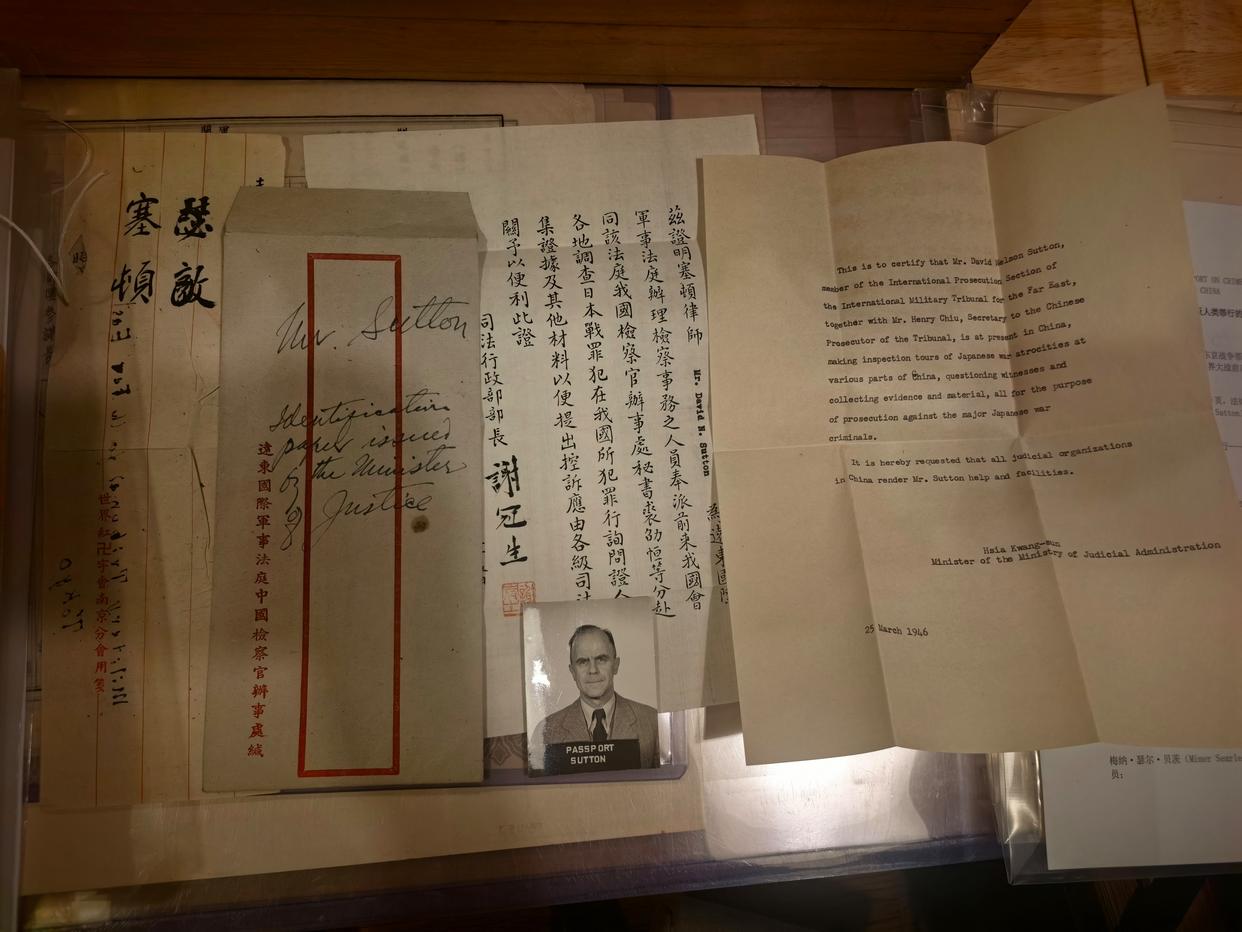 瑟敵
塞頓
世界紅卍字會南京分會用箋
Mr. Sutton
Identification
paper issued
by the Minister
of Justice
遠東國際軍事法庭中國檢察官辦事處緘
茲證明塞頓律師 Mr. David N. Sutton
軍事法庭辦理檢察事務之人員奉派前來我國會
同該法庭我國檢察官辦事處秘書裘劭恒等分赴
各地調查日本戰罪犯在我國所犯罪行詢問證人
集證據及其他材料以便提出控訴應由各級司法
關予以便利此證
司法行政部部長 謝冠生
PASSPORT
SUTTON
This is to certify that Mr. David Nelson Sutton,
member of the International Prosecution Section of
the International Military Tribunal for the Far East,
together with Mr. Henry Chiu, Secretary to the Chinese
Prosecutor of the Tribunal, is at present in China,
making inspection tours of Japanese war atrocities at
various parts of China, questioning witnesses and
collecting evidence and material, all for the purpose
of prosecution against the major Japanese war
criminals.
It is hereby requested that all judicial organizations
in China render Mr. Sutton help and facilities.
Hsia Kwang-sun
Minister of the Ministry of Judicial Administration
25 March 1946
PORT ON CRIME
CHINA
人类罪行的
东京战争
界大战
Sutton
梅纳·瑟尔·贝茨 (Miner Searle
员;